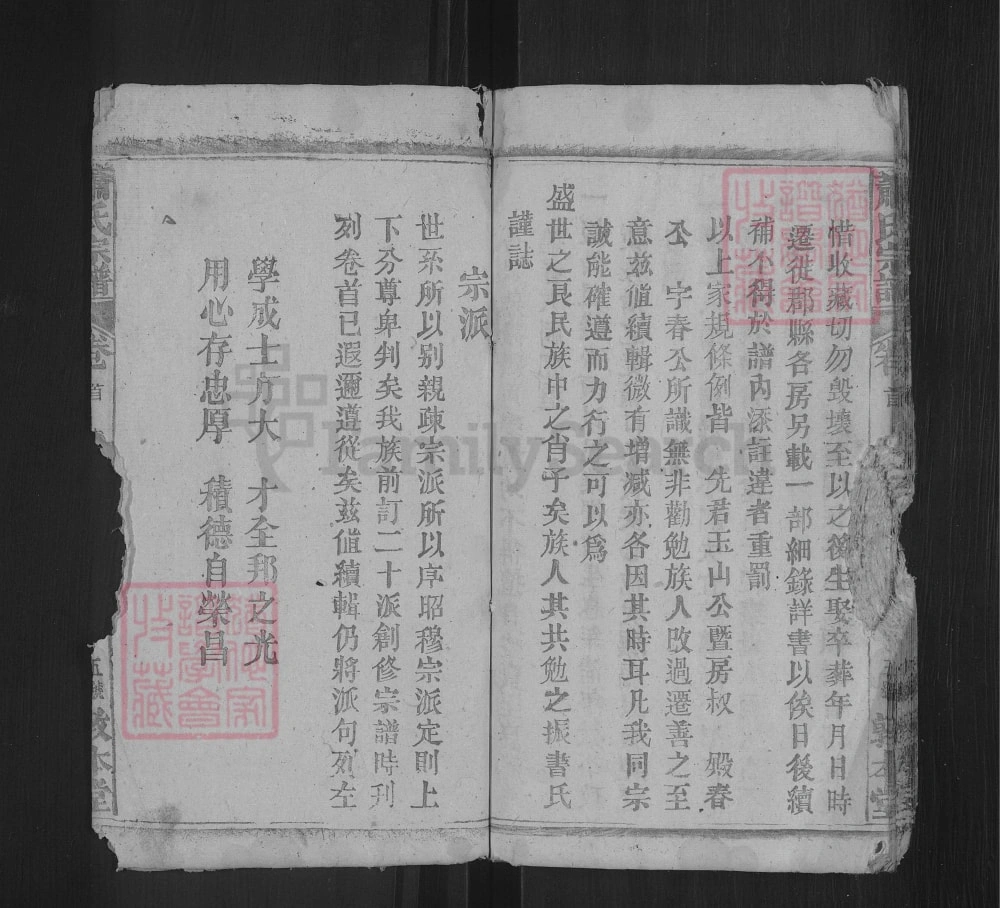 惜收藏切勿毀壞至以之後生娶卒葬年月日時
遷徙郡縣各房另載一部細錄詳書以俟日後續
補不得於譜內添註違者重罰
以上家規條例皆 先君玉山公暨房叔 殿春
公 字春公所識無非勸勉族人改過遷善之至
意茲值續輯微有增減亦各因其時耳凡我同宗
誠能確遵而力行之可以為
盛世之良民族中之肖子矣族人其共勉之振書氏
謹誌
宗派
世系所以別親疎宗派所以序昭穆宗派定則上
下分尊卑判矣我族前訂二十派創修宗譜時刊
列卷首已遐邇遵從矣茲值續輯仍將派句列左
學成士方大 才全邦之光
用心存忠厚 積德自榮昌
蕭氏宗譜
卷首
敦本堂
FamilySearch